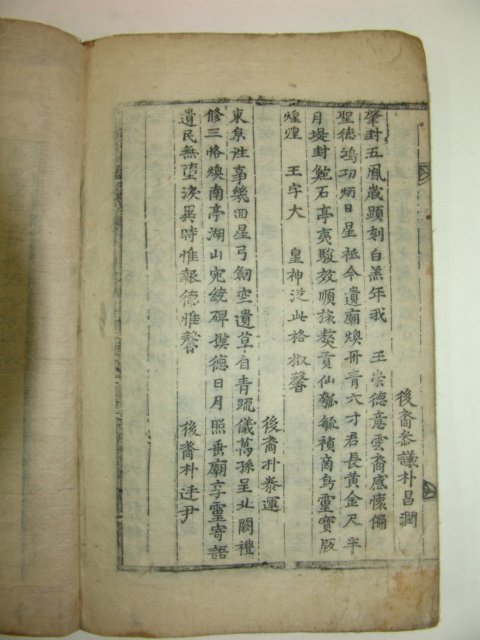 後裔參議朴昌潤
肇封五鳳歲顯刻白羔年我　王崇德意雲裔感懷偏
聖德鴻功炳日星祗今遺廟煥丹青六才君長黃金尺半
月堤封鮑石亭夷駿效順旅獒貢仙瓢毓禎啇鳥靈實版
煌煌　王字大　皇神泛此格椒馨
後裔朴泰運
東京往事幾四星弓劒空遺草自青疏儀萬孫呈北闕禮
修三恪煥南亭湖山宛繞碑摸德日月照垂廟享靈寄語
遺民無墮淚異時惟報德惟馨
後裔朴 尹